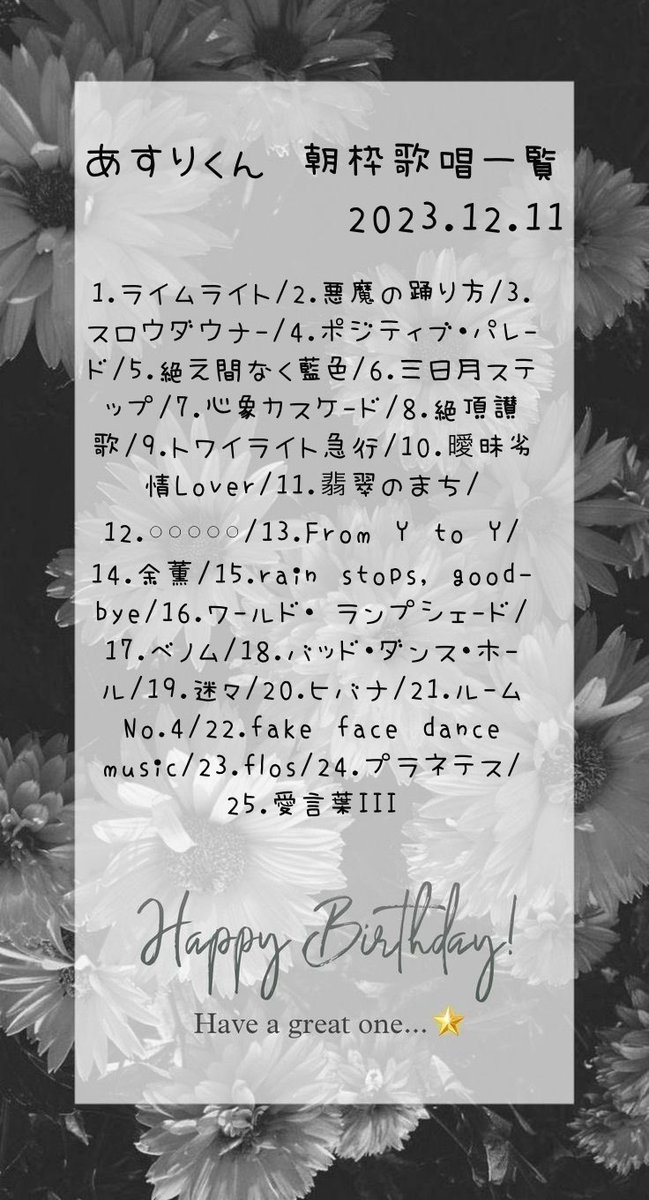 あすりくん 朝枠歌唱一覧
2023.12.11
1.ライムライト/2.悪魔の踊り方/3.
スロウダウナー/4.ポジティブ・パレー
ド/5.絶え間なく藍色/6.三日月ステ
ップ/7.心象カスケード/8.絶頂讃
歌/9.トワイライト急行/10.曖昧劣
情Lover/11.翡翠のまち/
12.○○○○○/13.From Y to Y/
14.余薫/15.rain stops, good-
bye/16.ワールド・ランプシェード/
17.ベノム/18.バッド・ダンス・ホー
ル/19.迷々/20.ヒバナ/21.ルーム
No.4/22.fake face dance
music/23.flos/24.プラネテス/
25.愛言葉III
Happy Birthday!
Have a great one...⭐